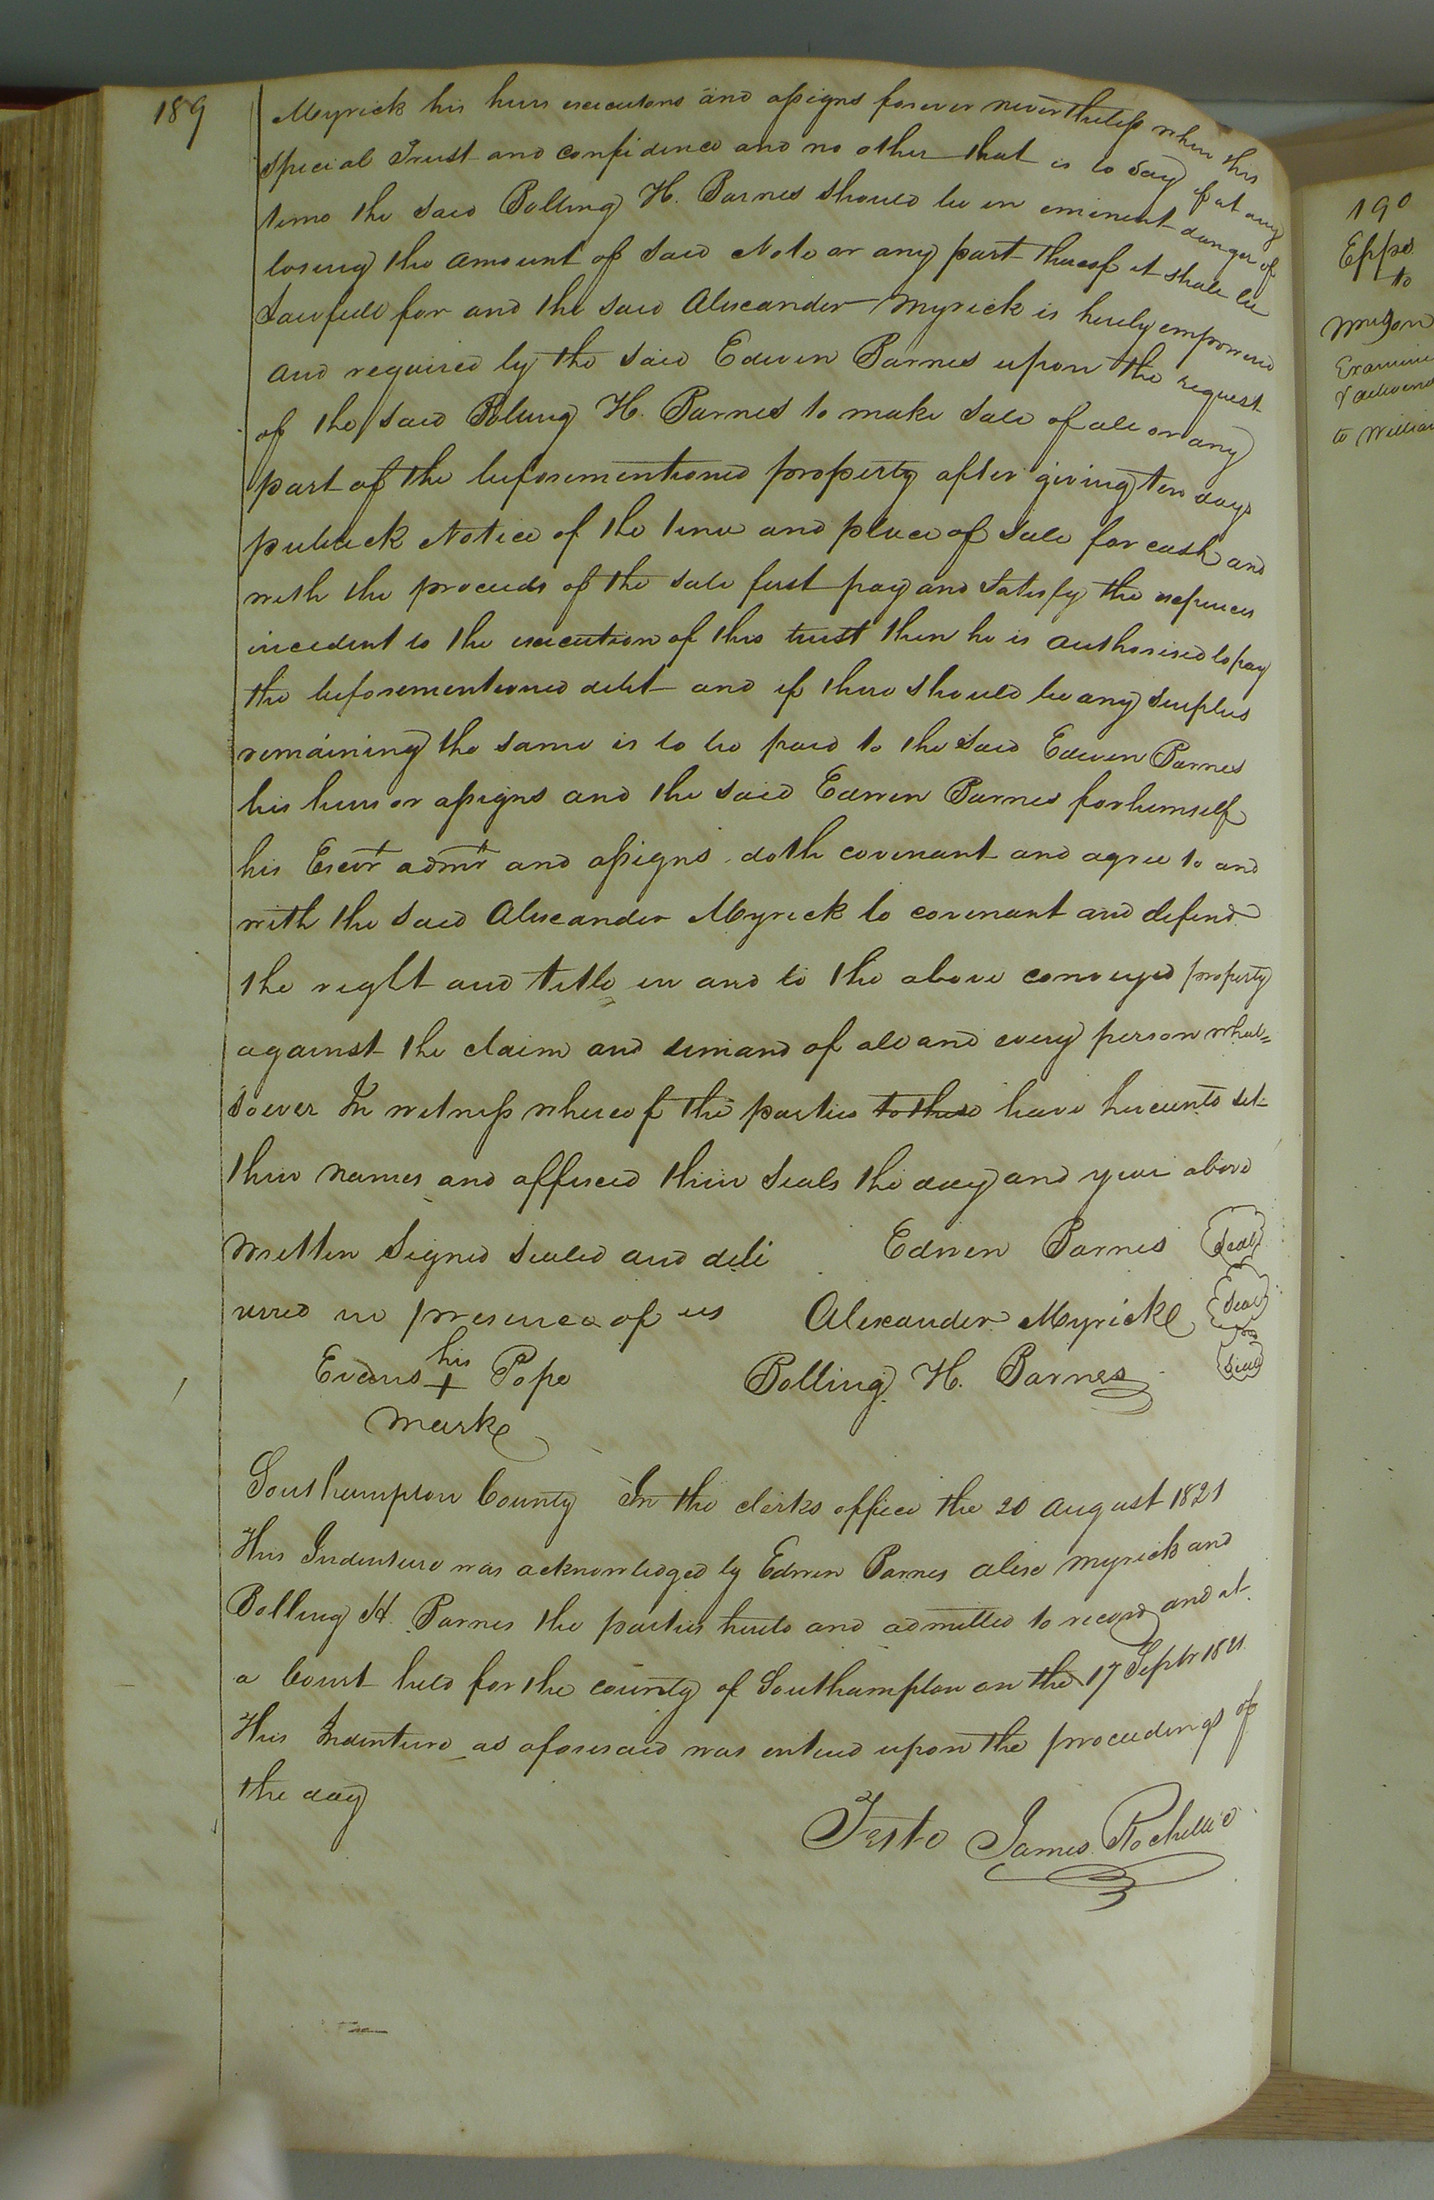 189
Myrick his heirs executors and assigns forever nevertheless when this
special Trust and confidence and no other that is to say if at any
time the said Bolling H. Barnes should be in eminent danger of
losing the amount of said Note or any part thereof it shall be
Lawfull for and the said Alexander Myrick is hereby empowered
and required by the said Edwin Barnes upon the request
of the said Bolling H. Barnes to make sale of all or any
part of the beforementioned property after giving ten days
publick Notice of the time and place of sale for cash and
with the proceeds of the sale first pay and satisfy the expences
incedent to the execution of this trust then he is authorised to pay
the beforementioned debt and if there should be any surplus
remaining the same is to be paid to the said Edwin Barnes
his heirs or assigns and the said Edwin Barnes for himself
his Exor admr and assigns doth covenant and agree to and
with the said Alexander Myrick to covenant and defend
the right and title in and to the above conveyed property
against the claim and demand of all and every person what=
soever In witness whereof the parties to these have hereunto set
their names and affixed their seals the day and year above
written Signed sealed and deli Edwin Barnes Seal
vered in presence of us Alexander Myrick Seal
Evans his + Pope Bolling H. Barnes Seal
mark
Southampton County In the clerks office the 20 august 1821
This Indenture was acknowledged by Edwin Barnes alexr Myrick and
Bolling H. Barnes the parties hereto and admitted to record and at
a Court held for the county of Southampton on the 17 Septr 1821
This Indenture as aforesaid was entered upon the proceedings of
the day
Teste James Rochelle
190
Epps
to
Examine
to William